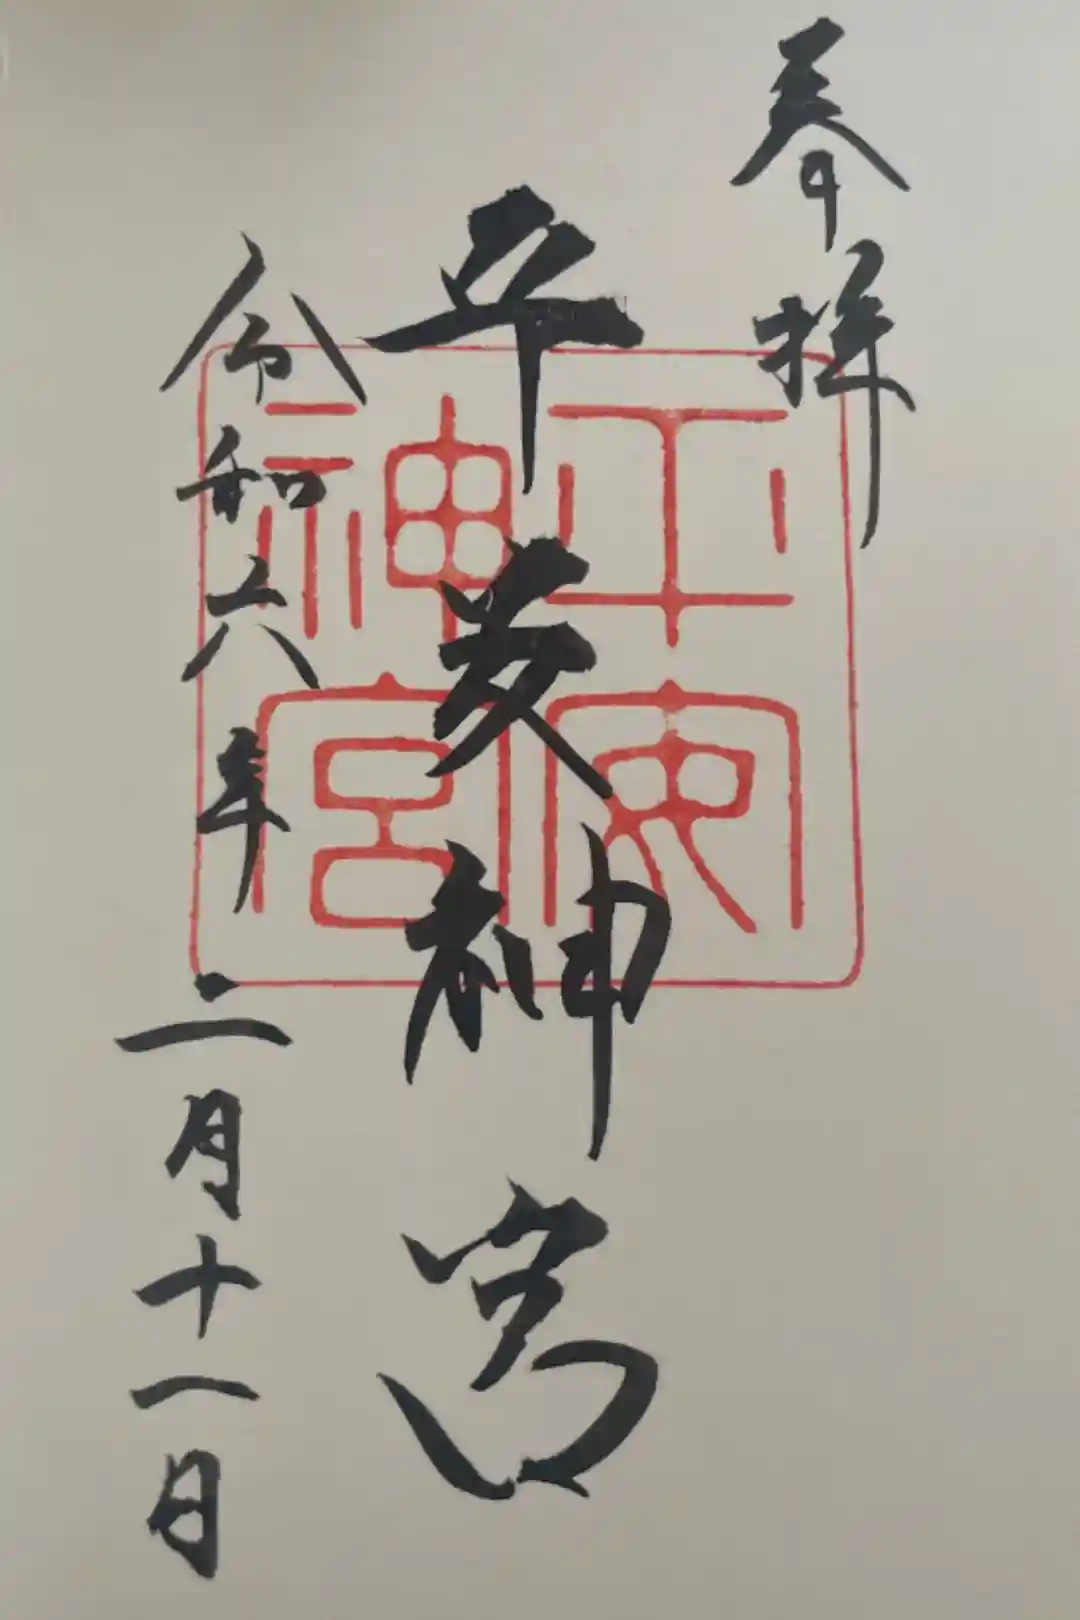 奉拝
平安神宮
平安神宮
令和六年二月十一日